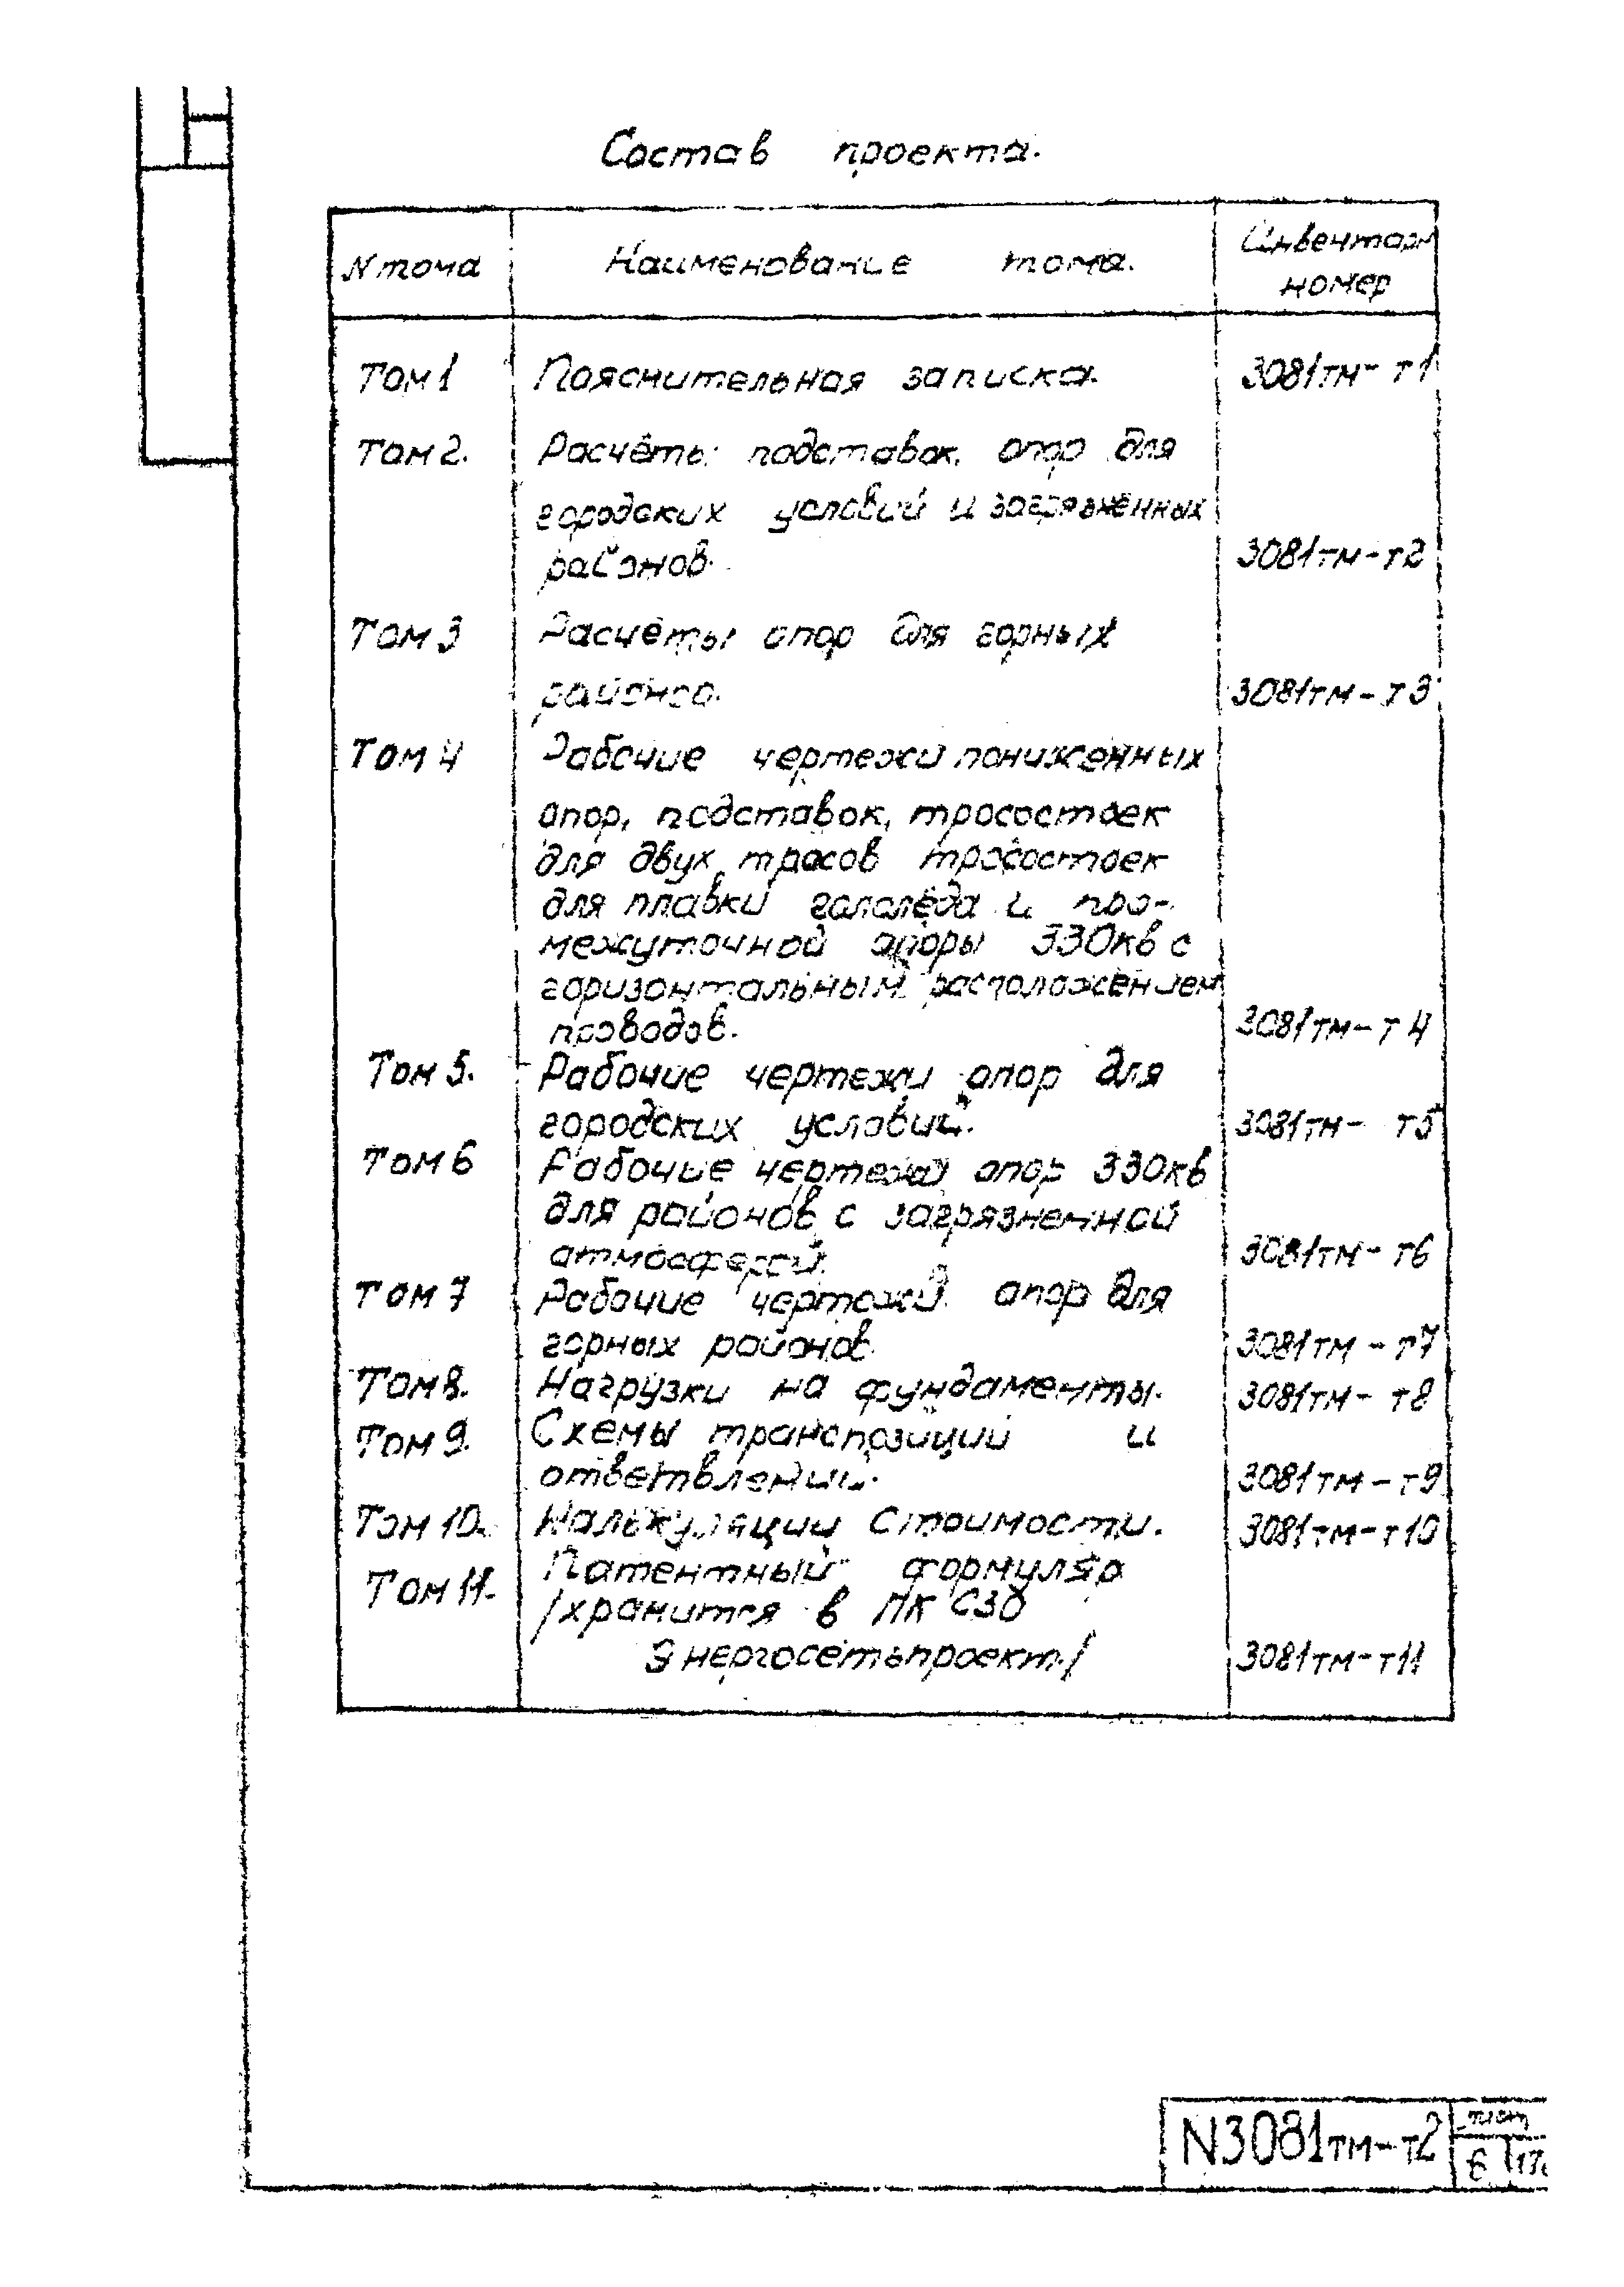 Состав проекта.
N тома Наименование тома. Инвентарн номер
Том 1 Пояснительная записка. 3081тм-т1
Том 2. Расчёты подставок, опор для
городских условий и загрязнённых
районов. 3081тм-т2
Том 3 Расчёты опор для горных
районов. 3081тм-т3
Том 4 Рабочие чертежи пониженных
опор, подставок, тросостоек
для двух тросов тросостоек
для плавки гололёда и про-
межуточной опоры 330кв с
горизонтальным расположением
проводов. 3081тм-т4
Том 5. Рабочие чертежи опор для
городских условий. 3081тм-т5
Том 6 Рабочие чертежи опор 330кв
для районов с загрязненной
атмосферой. 3081тм-т6
Том 7 Рабочие чертежи опор для
горных районов. 3081тм-т7
Том 8. Нагрузки на фундаменты. 3081тм-т8
Том 9. Схемы транспозиции и
ответвлений. 3081тм-т9
Том 10. Калькуляции стоимости. 3081тм-т10
Том 11. Патентный формуляр
/хранится в ПК СЗО
Энергосетьпроект./ 3081тм-т11
N3081тм-т2 лист